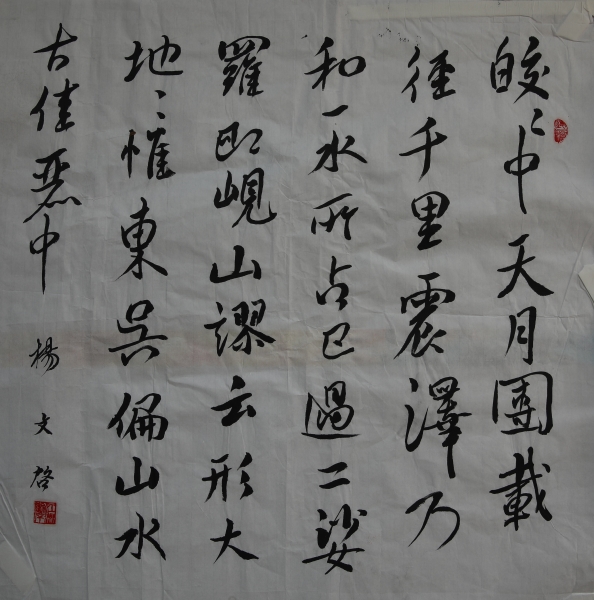 皎〻中天月團載
徑千里震澤乃
和一水所占已過二娑
羅即峴山謬云形大
地〻惟東吳偏山水
古佳麗中 楊文啓